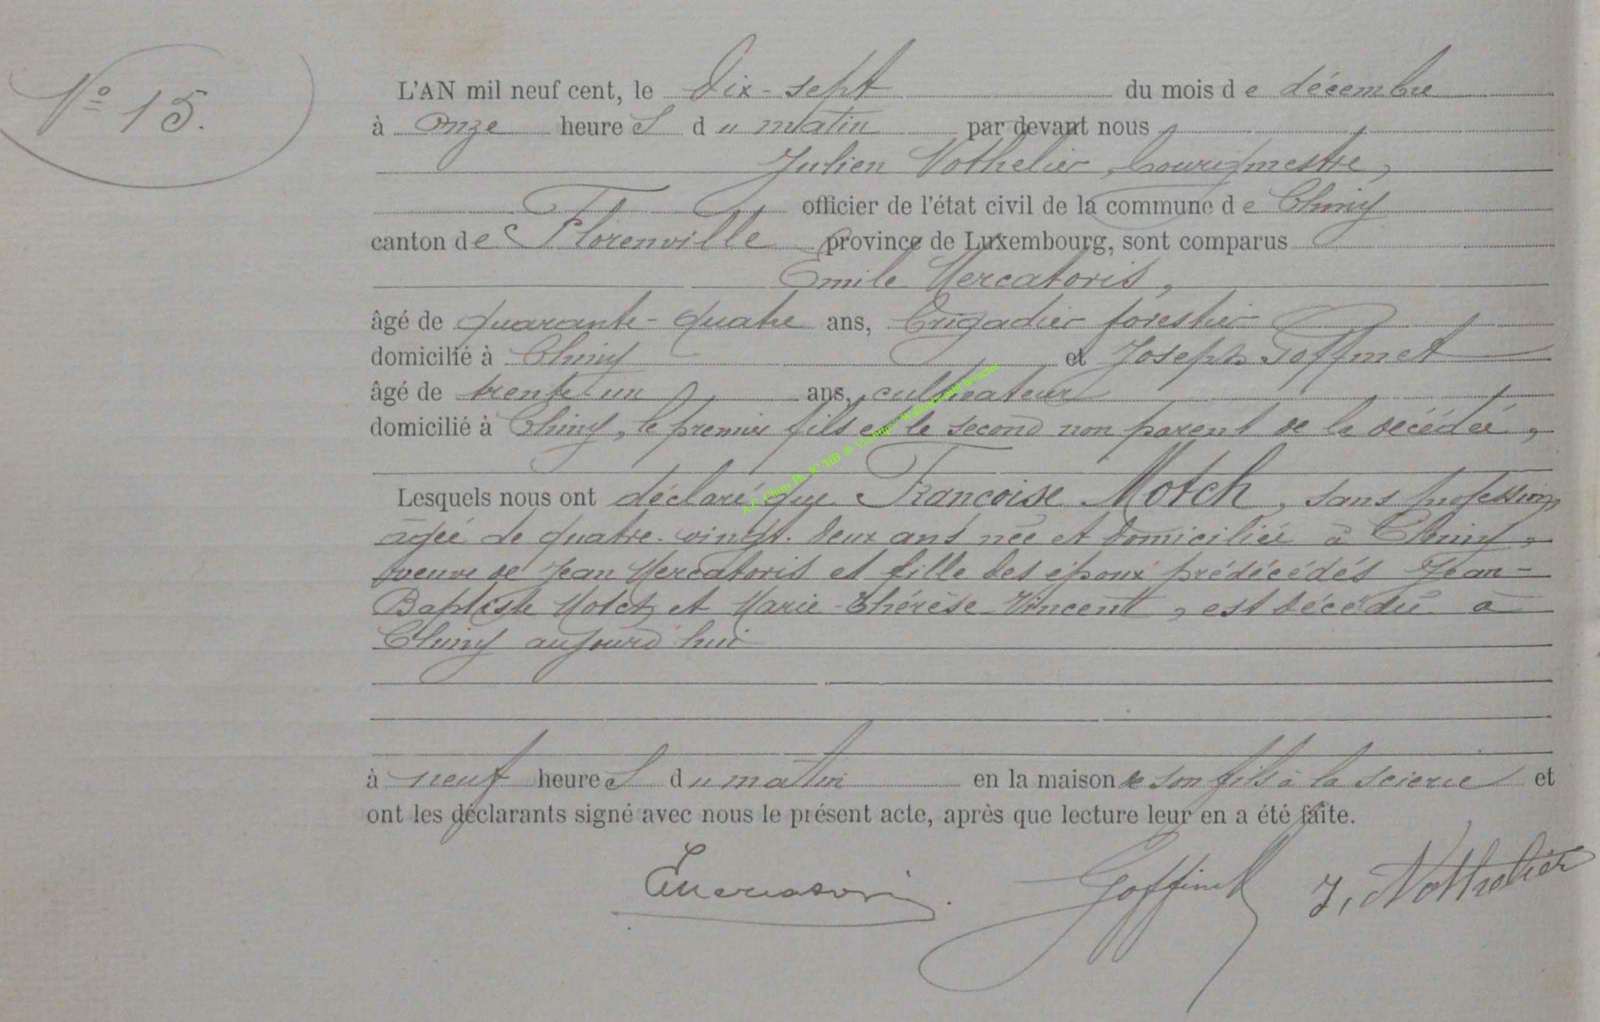 N° 15.
L'AN mil neuf cent, le dix-sept du mois de décembre
à onze heures du matin par devant nous
Julien Nothelier, bourgmestre,
officier de l'état civil de la commune de Chiny
canton de Florenville province de Luxembourg, sont comparus
Emile Mercatoris,
âgé de quarante-quatre ans, brigadier forestier
domicilié à Chiny et Joseph Goffinet
âgé de trente un ans, cultivateur
domicilié à Chiny, le premier fils et le second non parent de la décédée,
Lesquels nous ont déclaré que Françoise Motch, sans profession
âgée de quatre-vingt-deux ans née et domiciliée à Chiny,
veuve de Jean Mercatoris et fille des époux prédécédés Jean-
Baptiste Motch et Marie-Thérèse Vincent, est décédée à
Chiny aujourd'hui
à neuf heures du matin en la maison de son fils à la scierie et
ont les déclarants signé avec nous le présent acte, après que lecture leur en a été faite.
Goffinet J. Nothelier